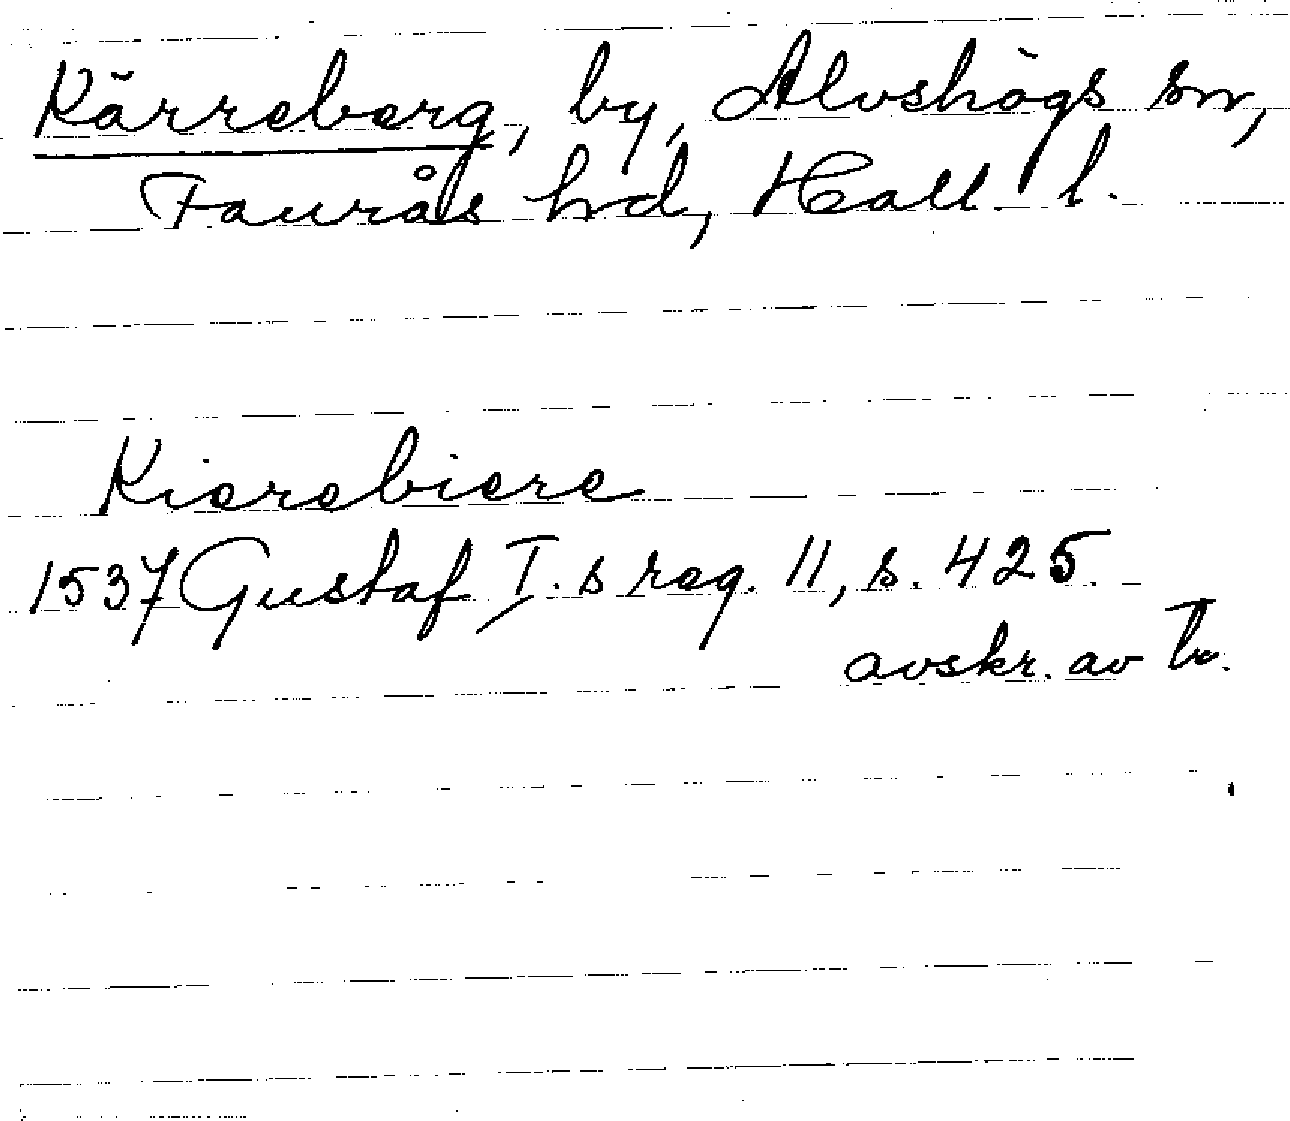 Kärreberg, by, Alvshögs sn,
Faurås hd, Hall. l.
Kierebiere
1537 Gustaf I. s reg. 11, s. 425.
avskr. av